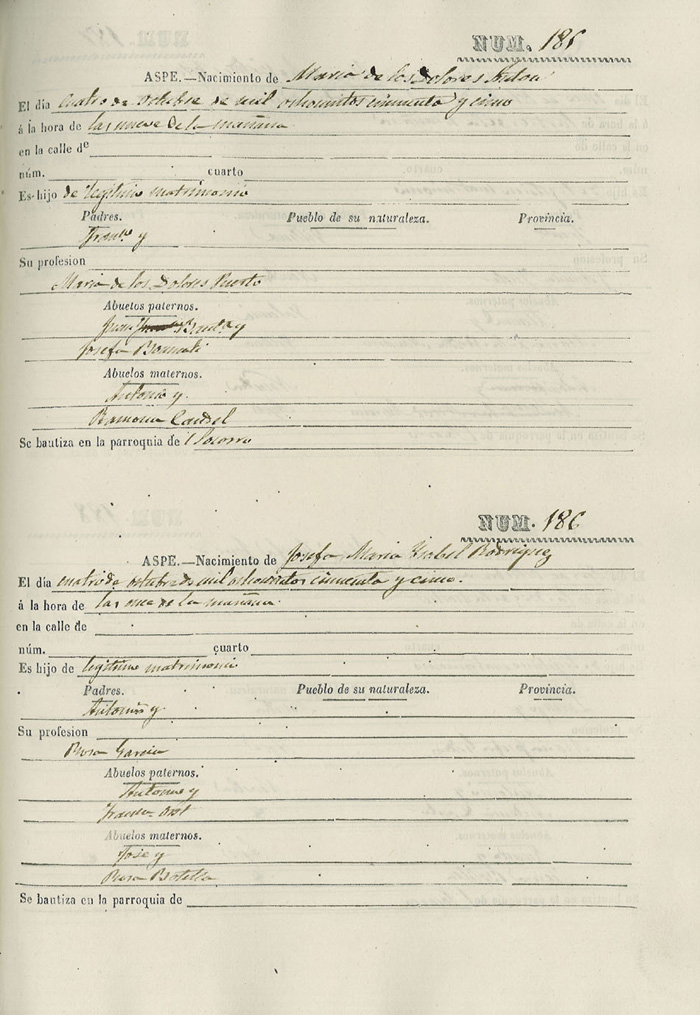 NUM. 186
ASPE.—Nacimiento de Maria de los Dolores
El dia cuatro de octubre de mil ochocientos cincuenta y cinco
á la hora de las nueve de la mañana
en la calle de
núm. cuarto
Es hijo de legitimo matrimonio
Padres. Pueblo de su naturaleza. Provincia.
Franco y
Su profesion
Maria de los Dolores Puerto
Abuelos paternos.
y
Josefa
Abuelos maternos.
Antonio y
Ramona Candel
Se bautiza en la parroquia de l Socorro
NUM. 186
ASPE.—Nacimiento de Josefa Maria Ysabel Rodriguez
El dia cuatro de octubre de mil ochocientos cincuenta y cinco.
á la hora de las once de la mañana
en la calle de
núm. cuarto
Es hijo de legitimo matrimonio
Padres. Pueblo de su naturaleza. Provincia.
Antonio y
Su profesion
Rosa Garcia
Abuelos paternos.
Antonio y
Abuelos maternos.
Jose y
Rosa Botella
Se bautiza en la parroquia de